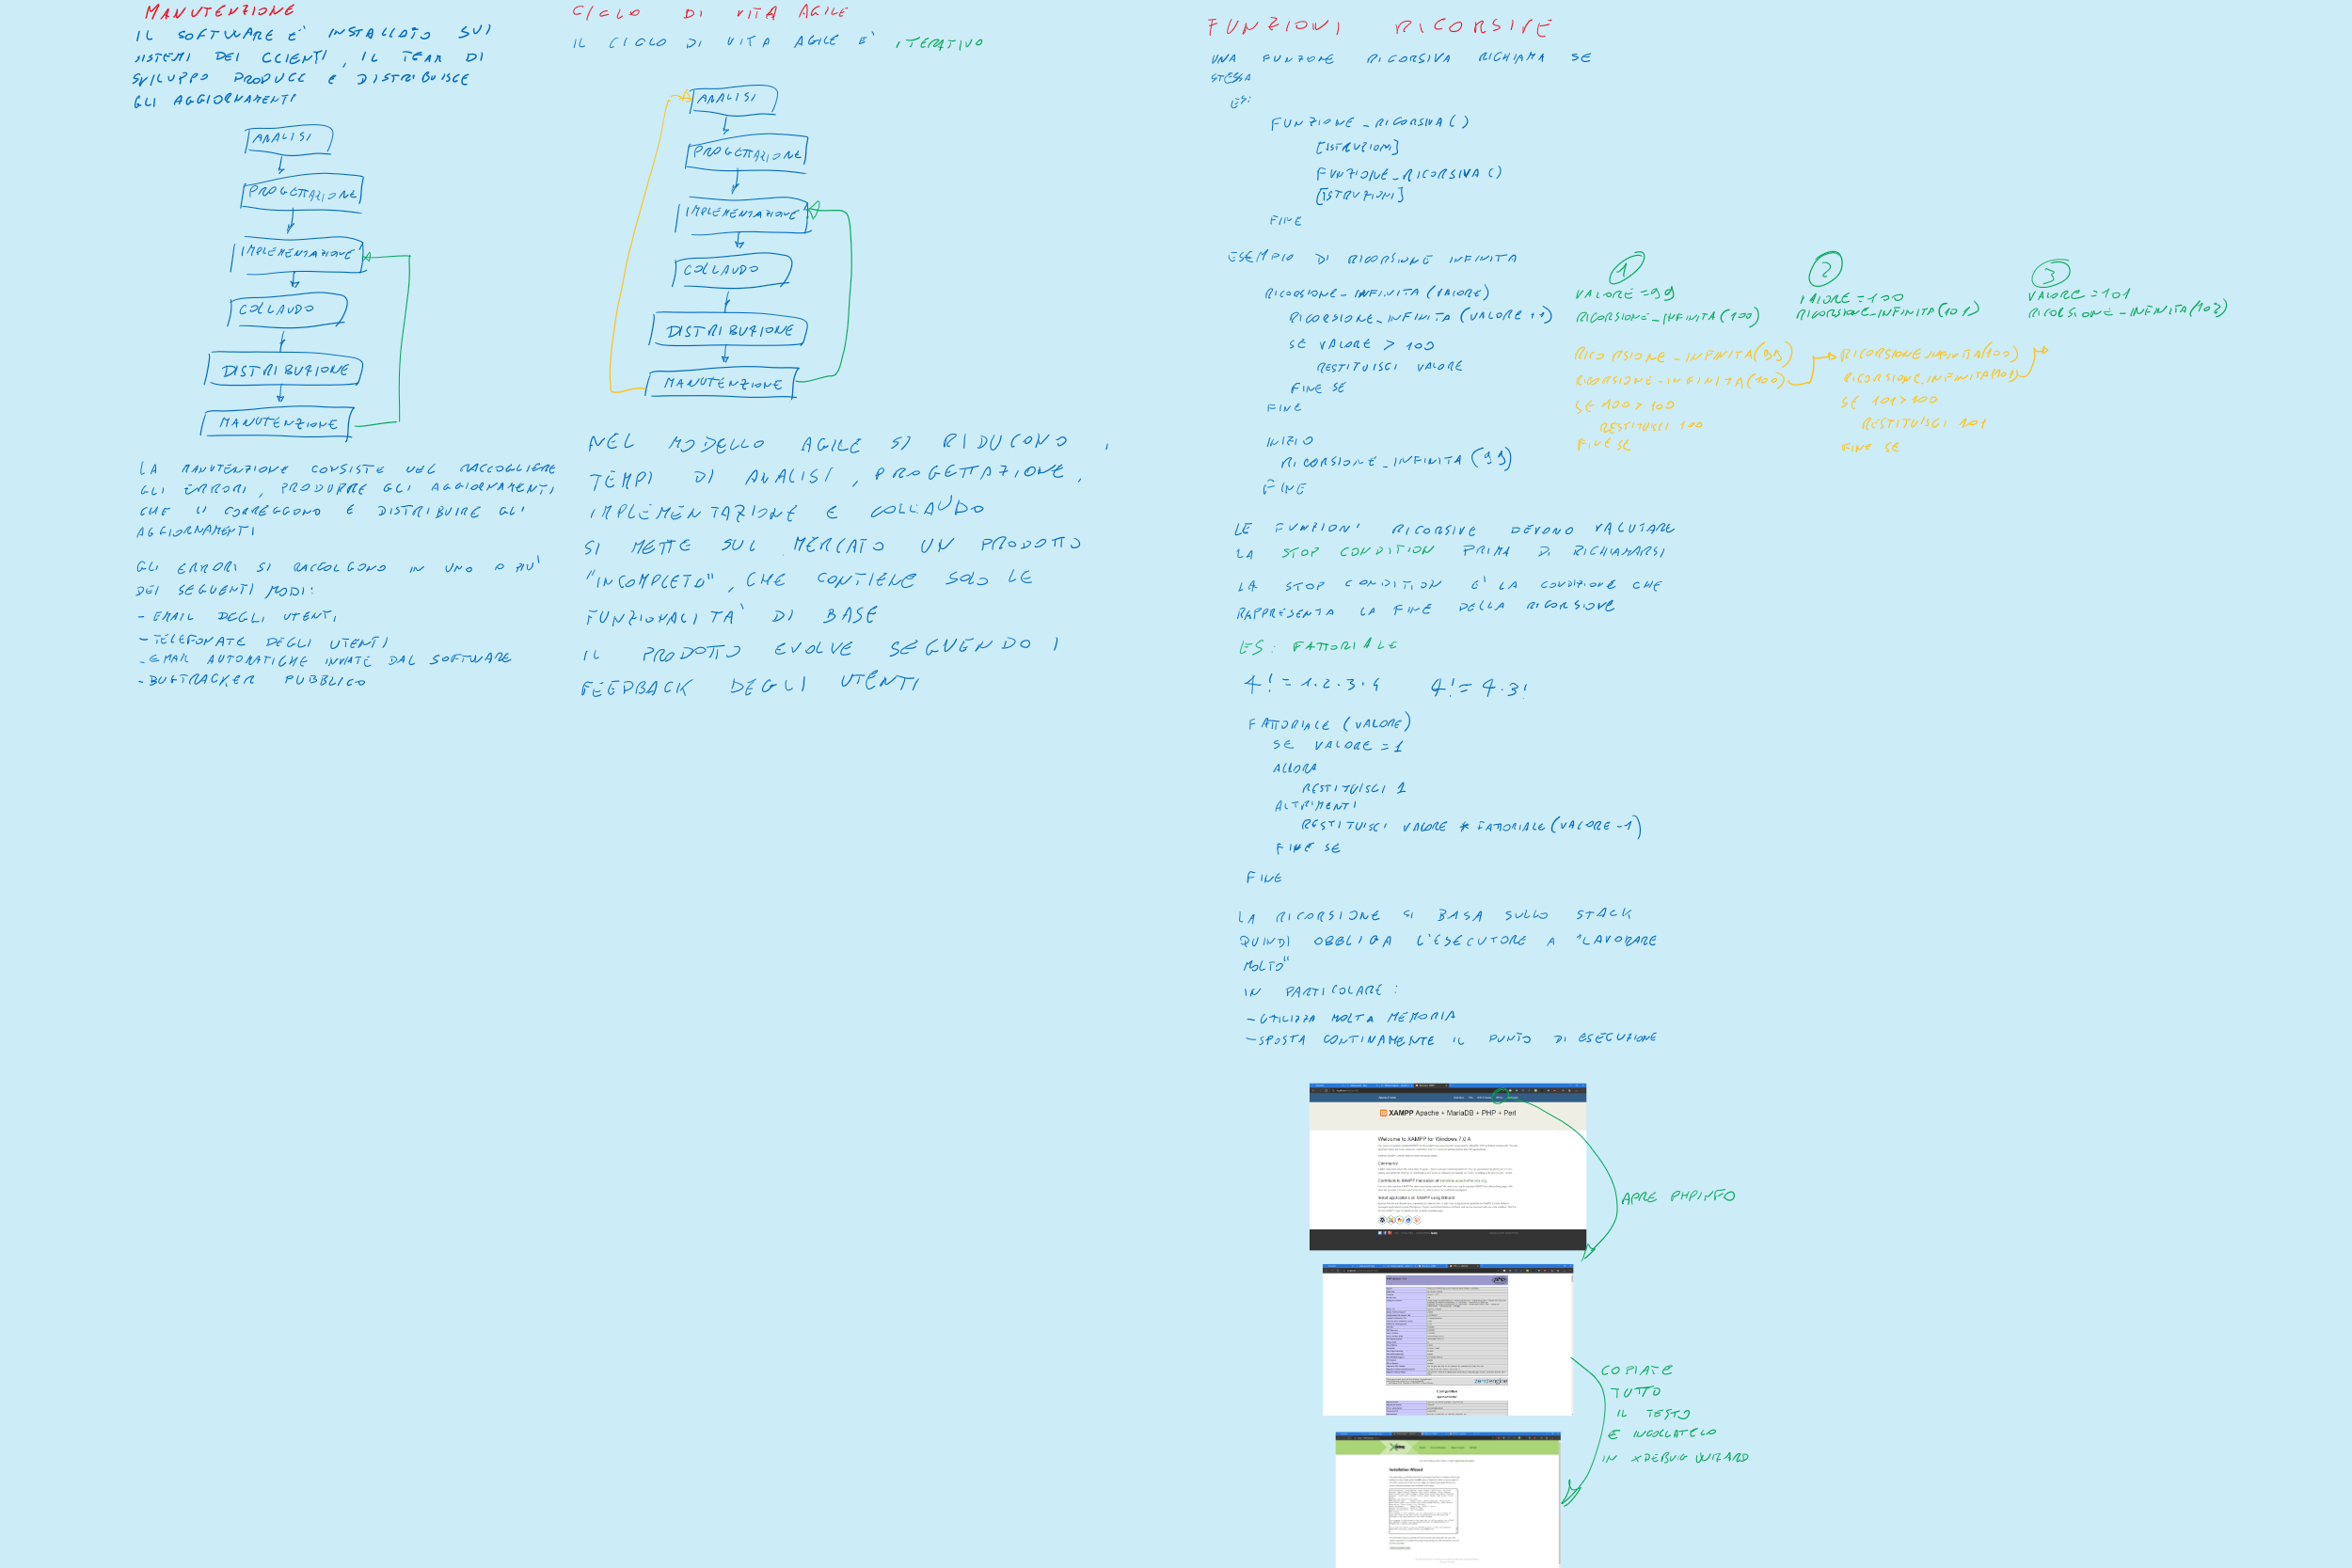 MANUTENZIONE
IL SOFTWARE E' INSTALLATO SUI
SISTEMI DEI CCIENTI, IL TEAM DI
SVILUPPO PRODUCE E DISTRIBUISCE
GLI AGGIORNAMENTI
ANALISI
PROGETTAZIONE
IMPLEMENTAZIONE
COLLAUDO
DISTRIBUZIONE
MANUTENZIONE
LA MANUTENZIONE CONSISTE NEL RACCOGLIERE
GLI ERRORI, PRODURRE GLI AGGIORNAMENTI
CHE LI CORREGGONO E DISTRIBUIRE GLI
AGGIORNAMENTI
GLI ERRORI SI RACCOLGONO IN UNO O PIU'
DEI SEGUENTI MODI:
- EMAIL DEGLI UTENTI
- TELEFONATE DEGLI UTENTI
- EMAIL AUTOMATICHE INVIATE DAL SOFTWARE
- BUGTRACKER PUBBLICO
CICLO DI VITA AGILE
IL CICLO DI VITA AGILE E' ITERATIVO
ANALISI
PROGETTAZIONE
IMPLEMENTAZIONE
COLLAUDO
DISTRIBUZIONE
MANUTENZIONE
NEL MODELLO AGILE SI RIDUCONO I
TEMPI DI ANALISI, PROGETTAZIONE,
IMPLEMENTAZIONE E COLLAUDO
SI METTE SUL MERCATO UN PRODOTTO
"INCOMPLETO", CHE CONTIENE SOLO LE
FUNZIONALITA' DI BASE
IL PRODOTTO EVOLVE SEGUENDO I
FEEDBACK DEGLI UTENTI
FUNZIONI RICORSIVE
UNA FUNZIONE RICORSIVA RICHIAMA SE
STESSA
ES:
FUNZIONE_RICORSIVA()
[ISTRUZIONI]
FUNZIONE_RICORSIVA()
[ISTRUZIONI]
FINE
ESEMPIO DI RICORSIONE INFINITA
RICORSIONE_INFINITA (VALORE)
RICORSIONE_INFINITA (VALORE +1)
SE VALORE > 100
RESTITUISCI VALORE
FINE SE
FINE
INIZIO
RICORSIONE_INFINITA (99)
FINE
1
VALORE = 99
RICORSIONE_INFINITA (100)
2
VALORE = 100
RICORSIONE_INFINITA (101)
3
VALORE = 101
RICORSIONE_INFINITA (102)
RICORSIONE_INFINITA (99)
RICORSIONE_INFINITA (100)
SE 100 > 100
RESTITUISCI 100
FINE SE
RICORSIONE_INFINITA (100)
RICORSIONE_INFINITA (101)
SE 101 > 100
RESTITUISCI 101
FINE SE
LE FUNZIONI RICORSIVE DEVONO VALUTARE
LA STOP CONDITION PRIMA DI RICHIAMARSI
LA STOP CONDITION E' LA CONDIZIONE CHE
RAPPRESENTA LA FINE DELLA RICORSIONE
ES: FATTORIALE
4! = 1·2·3·4 4! = 4·3!
FATTORIALE (VALORE)
SE VALORE = 1
ALLORA
RESTITUISCI 1
ALTRIMENTI
RESTITUISCI VALORE * FATTORIALE (VALORE -1)
FINE SE
FINE
LA RICORSIONE SI BASA SULLO STACK
QUINDI OBBLIGA L'ESECUTORE A "LAVORARE
MOLTO"
IN PARTICOLARE:
- UTILIZZA MOLTA MEMORIA
- SPOSTA CONTINAMENTE IL PUNTO DI ESECUZIONE
XAMPP Apache + MariaDB + PHP + Perl
Welcome to XAMPP for Windows 7.0.4
Community
Install applications on XAMPP using Bitnami
APRE PHPINFO
php
zend engine
Configuration
COPIATE
TUTTO
IL TESTO
E INCOLLATELO
IN XDEBUG WIZARD
Installation Wizard